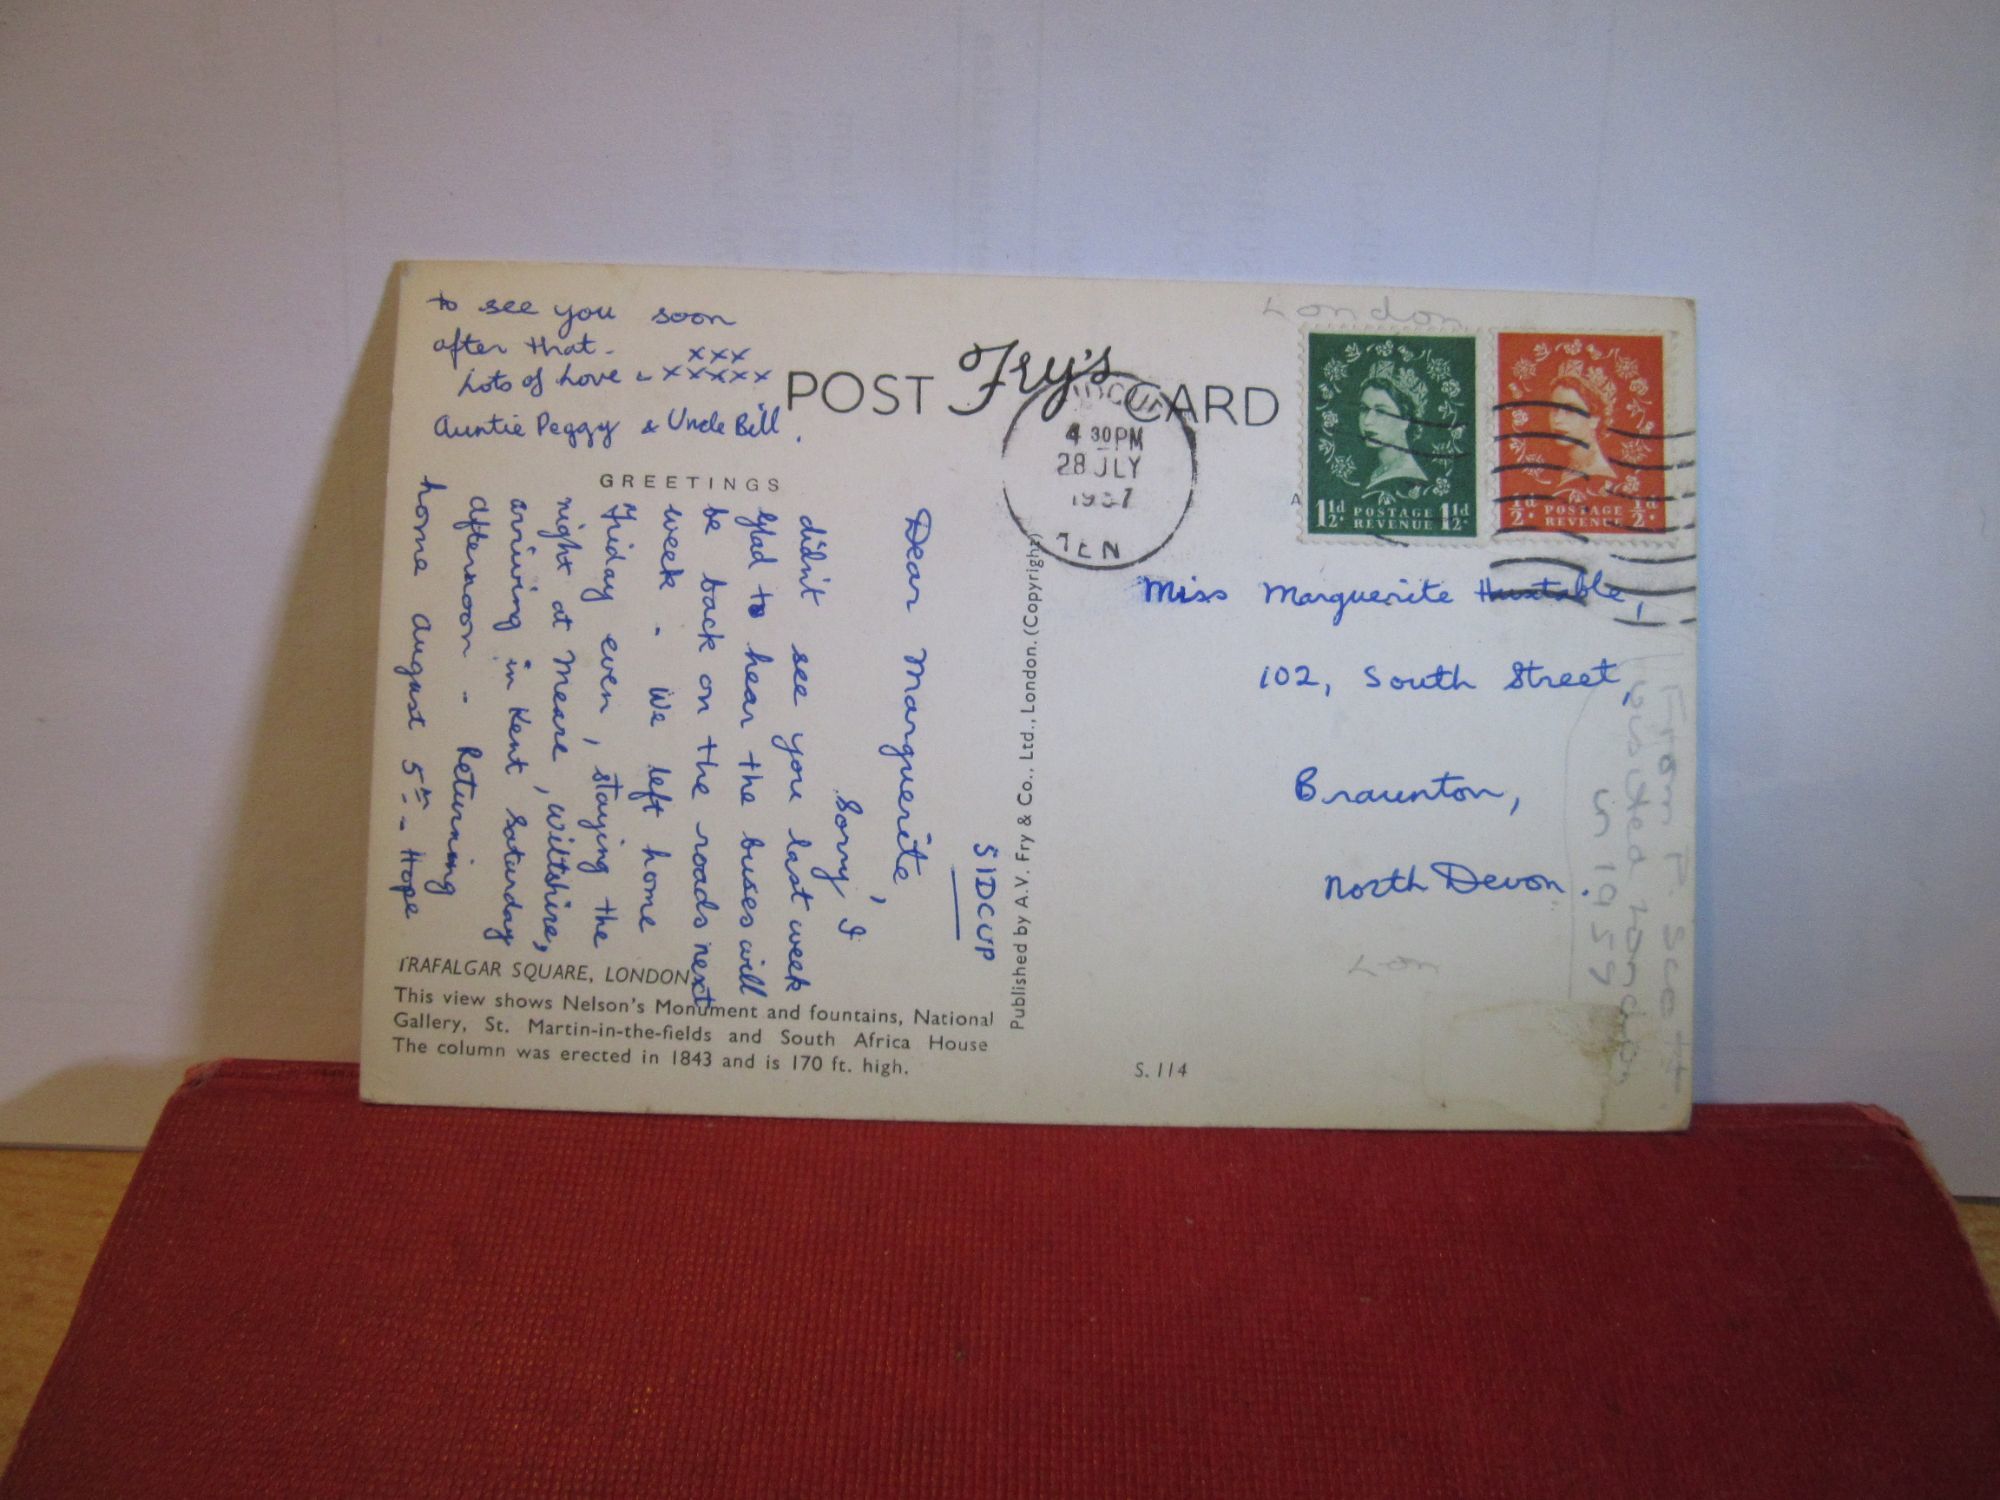 POST Fry's CARD
GREETINGS
SIDCUP
Dear Marguerite,
Sorry I
didn't see you last week
glad to hear the buses will
be back on the roads next
week - We left home
Friday even, staying the
night at Meare, Wiltshire,
arriving in Kent Saturday
afternoon - Returning
home August 5th - Hope
to see you soon
after that -
xxx
Lots of Love - xxxxx
Auntie Peggy & Uncle Bill.
TRAFALGAR SQUARE, LONDON
This view shows Nelson's Monument and fountains, National
Gallery, St. Martin-in-the-fields and South Africa House
The column was erected in 1843 and is 170 ft. high.
Published by A.V. Fry & Co., Ltd., London. (Copyright)
London
SIDCUP
4 30 PM
28 JLY
1957
A
1½d POSTAGE REVENUE 1½d
½d POSTAGE REVENUE ½d
Miss Marguerite Huxtable,
102, South Street,
Braunton,
North Devon.
Lon
From P. Scott
visited London
in 1959
S. 114